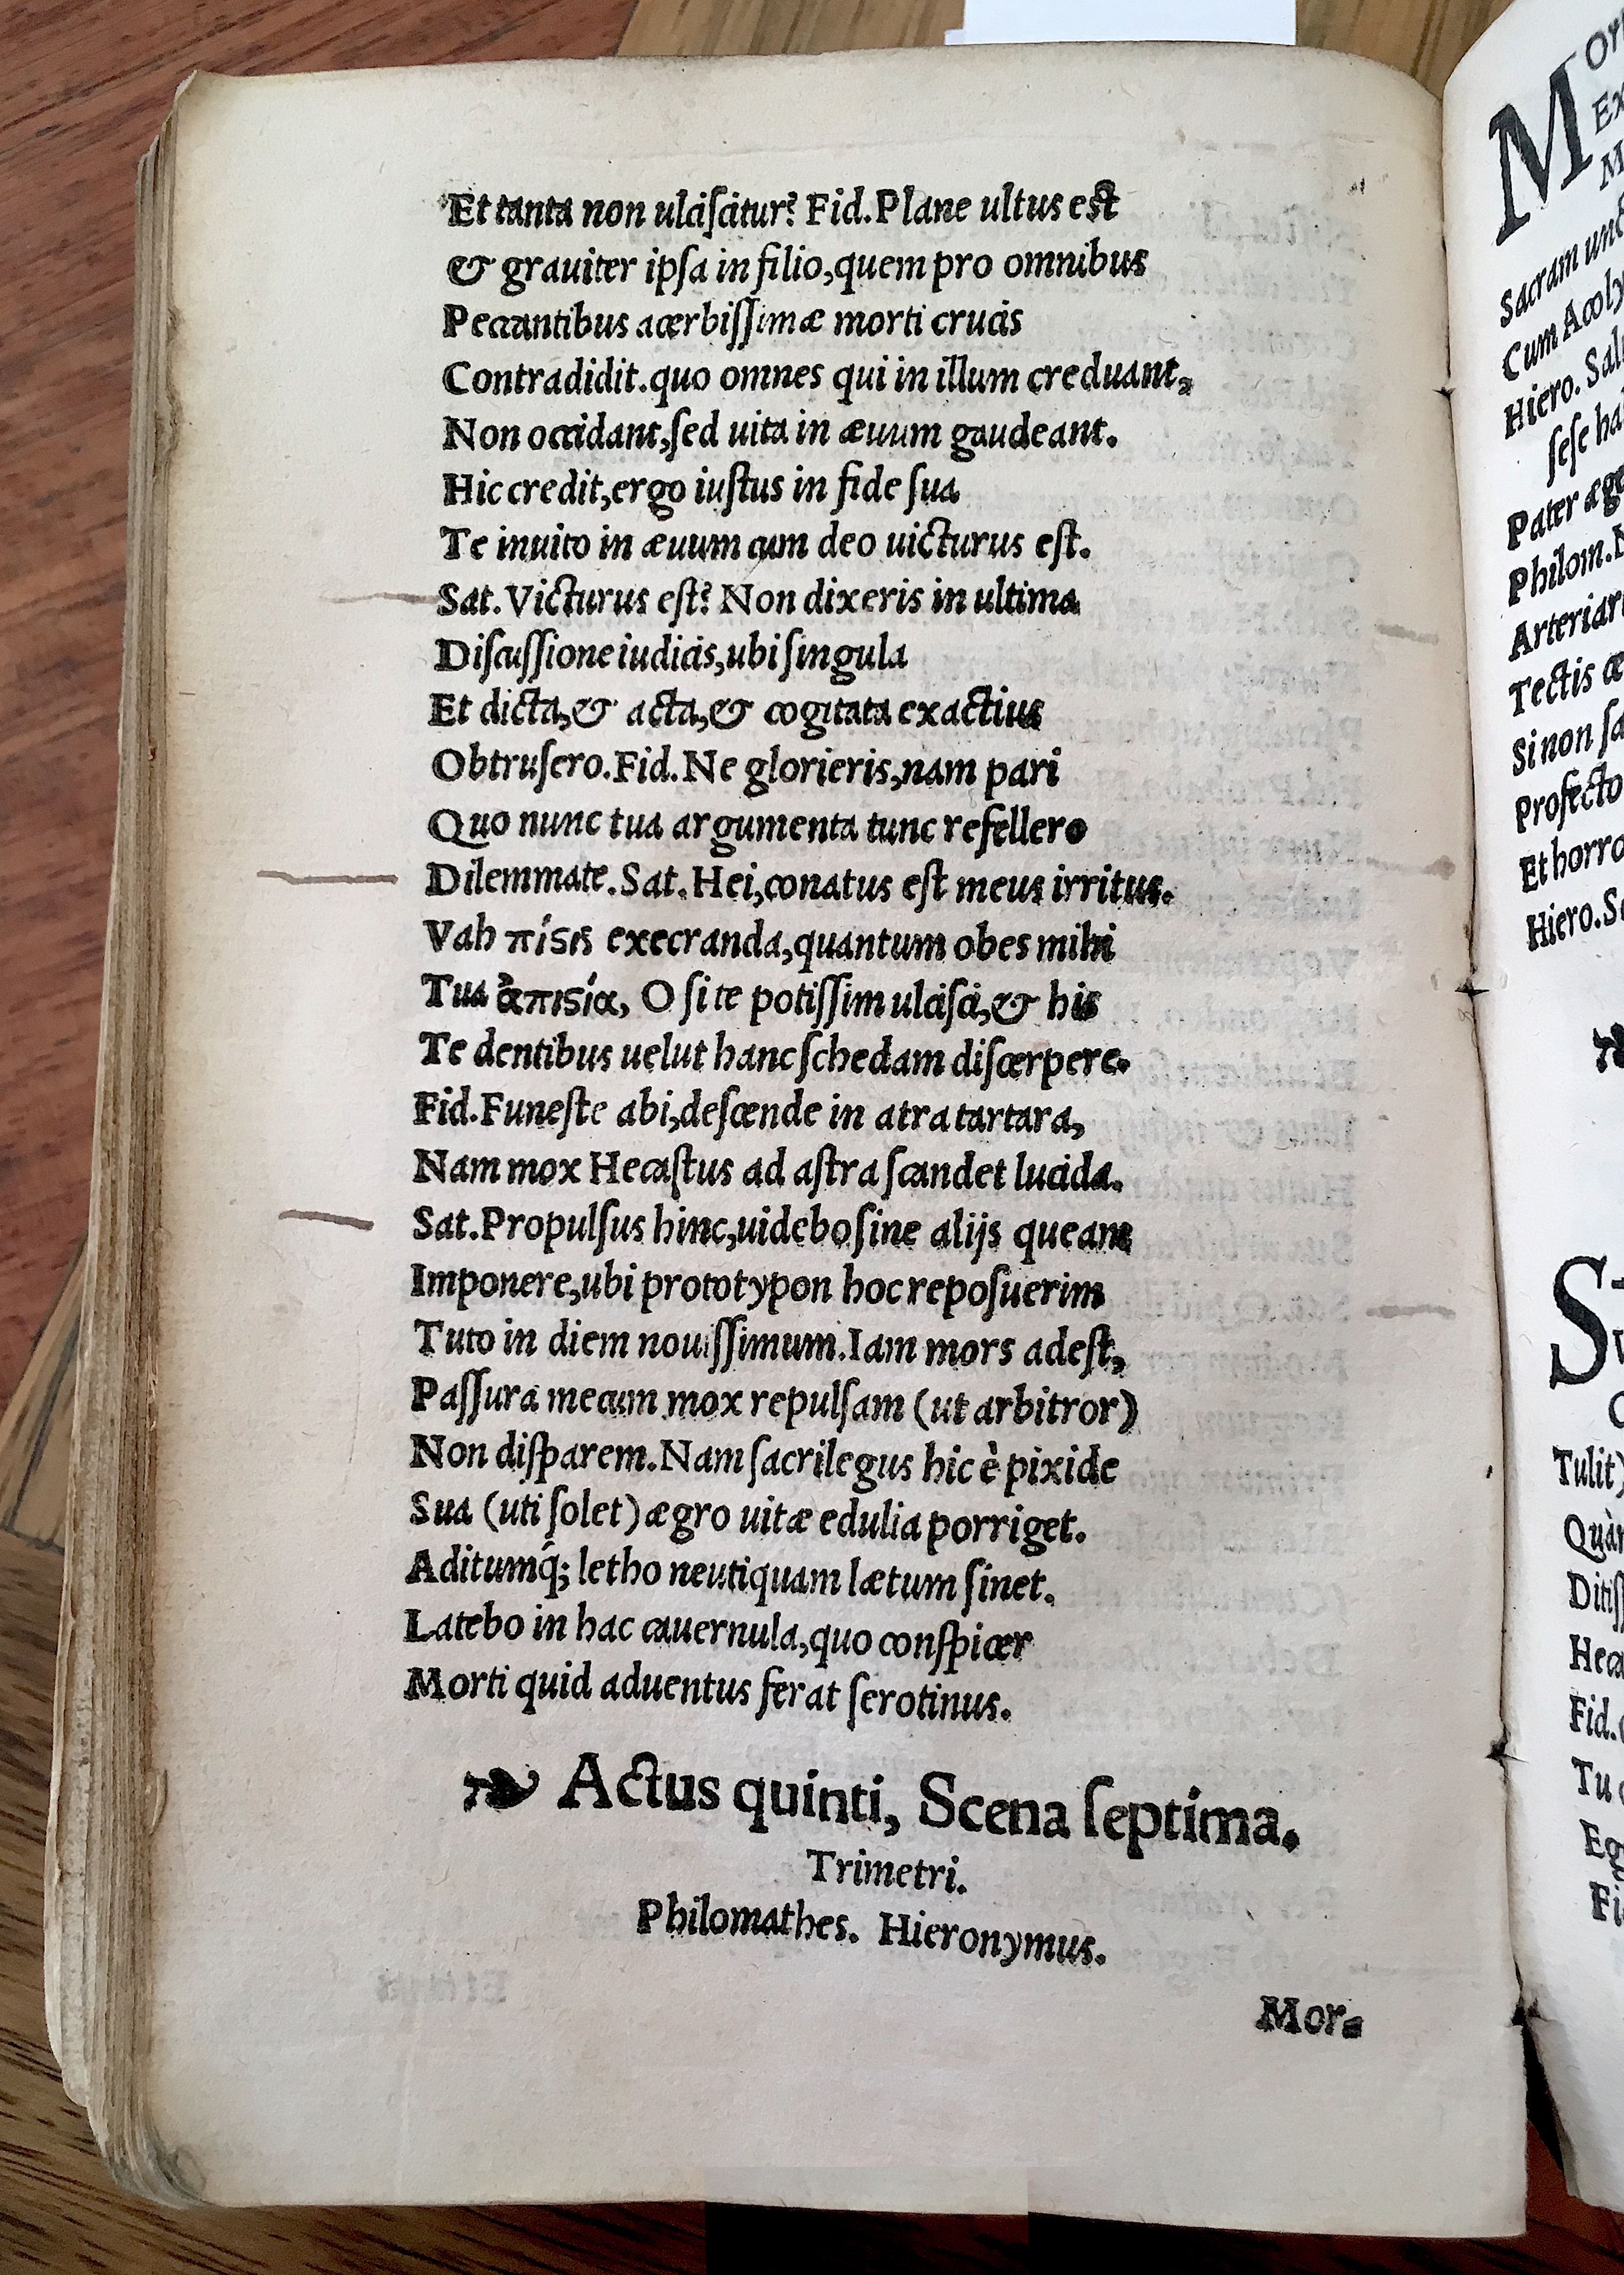 Et tanta non ulciſcitur? Fid. Plane ultus eſt
& grauiter ipſa in filio, quem pro omnibus
Peccantibus acerbiſſimæ morti crucis
Contradidit. quo omnes qui in illum creduant,
Non occidant, ſed uita in æuum gaudeant.
Hic credit, ergo iuſtus in fide ſua
Te inuito in æuum cum deo uicturus eſt.
Sat. Victurus eſt? Non dixeris in ultima
Diſcuſſione iudicis, ubi ſingula
Et dicta, & acta, & cogitata exactius
Obtruſero. Fid. Ne glorieris, nam pari
Quo nunc tua argumenta tunc refellero
Dilemmate. Sat. Hei, conatus eſt meus irritus.
Vah πίςις execranda, quantum obes mihi
Tua ἀπιςία, O ſi te potiſſim ulciſci, & his
Te dentibus uelut hanc ſchedam diſcerpere.
Fid. Funeſte abi, deſcende in atra tartara,
Nam mox Hecaſtus ad aſtra ſcandet lucida.
Sat. Propulſus hinc, uidebo ſine alijs queam
Imponere, ubi prototypon hoc repoſuerim
Tuto in diem nouiſſimum. Iam mors adeſt,
Paſſura mecum mox repulſam (ut arbitror)
Non diſparem. Nam ſacrilegus hic è pixide
Sua (uti ſolet) ægro uitæ edulia porriget.
Aditumq́; letho neutiquam lætum ſinet.
Latebo in hac cauernula, quo conſpicer
Morti quid aduentus ferat ſerotinus.
❧ Actus quinti, Scena ſeptima.
Trimetri.
Philomathes. Hieronymus.
Mor-
M
Sacram
Cum
Hiero.
ſeſe
Pater
Philom.
Tectis
Si non
Profecto
Et
Hiero.
S
Tulit)
Fid.
Tu